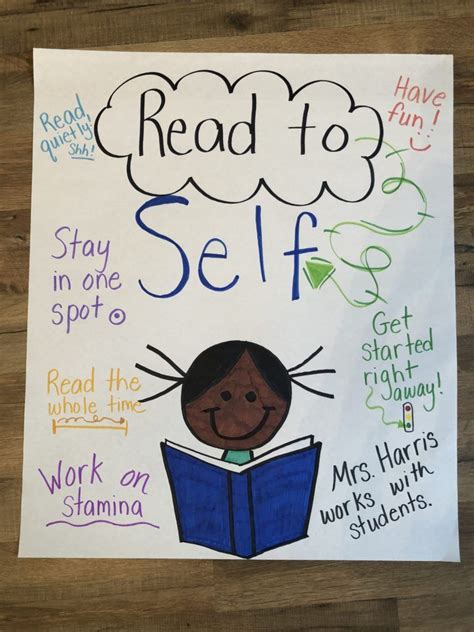 Read to
Self
Read
quietly.
Shh!
Have
fun!
Stay
in one
spot
Get
started
right
away!
Read the
whole time
Work on
Stamina
Mrs. Harris
works with
students.